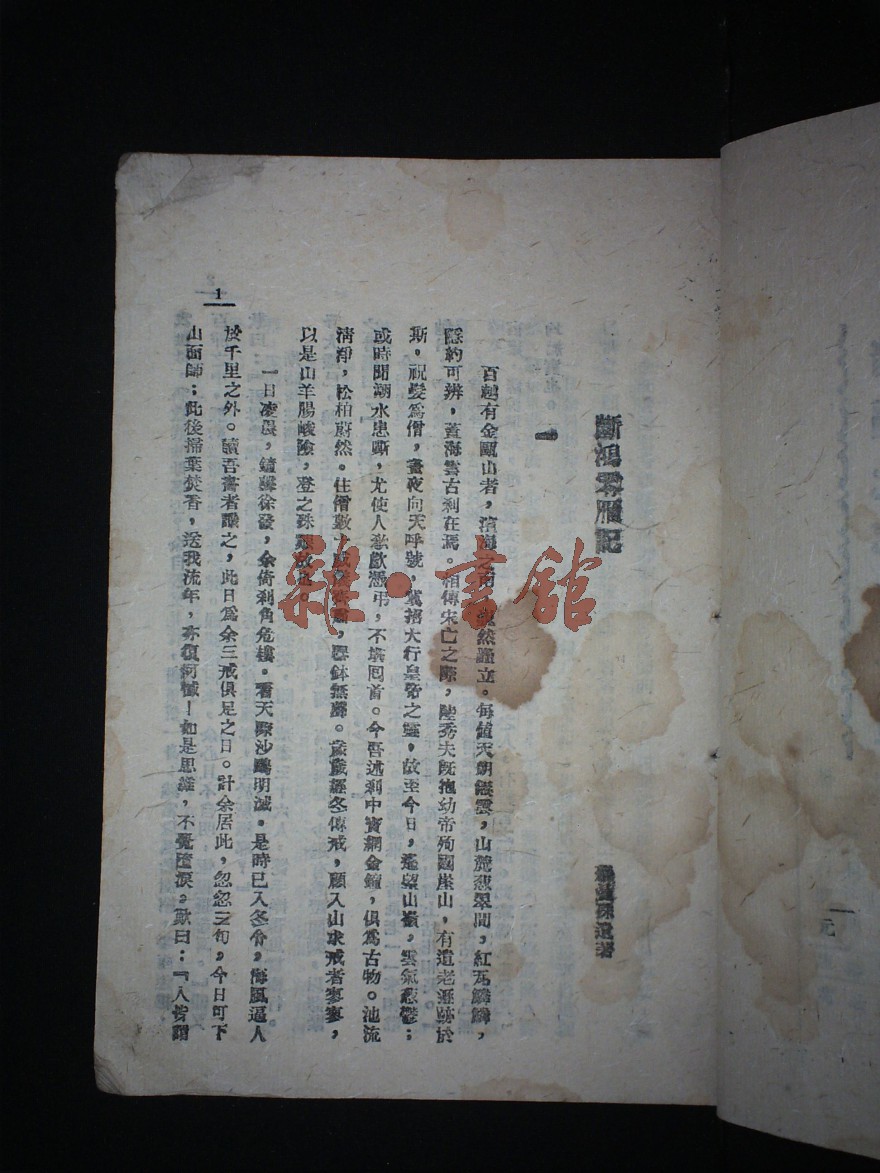 斷鴻零雁記
著
一
百越有金甌山者,濱海之南,然矗立。每値天朗無雲,山麓葱翠間,紅瓦鱗鱗,
隱約可辨,蓋海雲古刹在焉。相傳宋亡之際,陸秀夫旣抱幼帝殉國崖山,有遺老遯跡於
斯,祝髮爲僧,晝夜向天呼號,冀招大行皇帝之靈。故至今日,遙望山嶺,雲氣葱鬱;
或時聞潮水悲嘶,尤使人欷歔憑弔,不堪囘首。今吾述刹中寶網金鐘,俱爲古物。池流
淸淨,松柏蔚然。住僧數,威儀,器鉢無聲。歲歲經冬傳戒,顧入山求戒者寥寥,
以是山羊腸峻險,登之殊艱故也。
一日凌晨,鐘聲徐發,余倚刹角危樓,看天際沙鷗明滅。是時已入冬令,海風逼人
於千里之外。讀吾書者識之,此日爲余三戒俱足之日。計余居此,忽忽三旬,今日可下
山面師;此後掃葉焚香,送我流年,亦復何憾!如是思維,不覺墮淚,歎曰:『人皆謂
1
雜·書館
一元